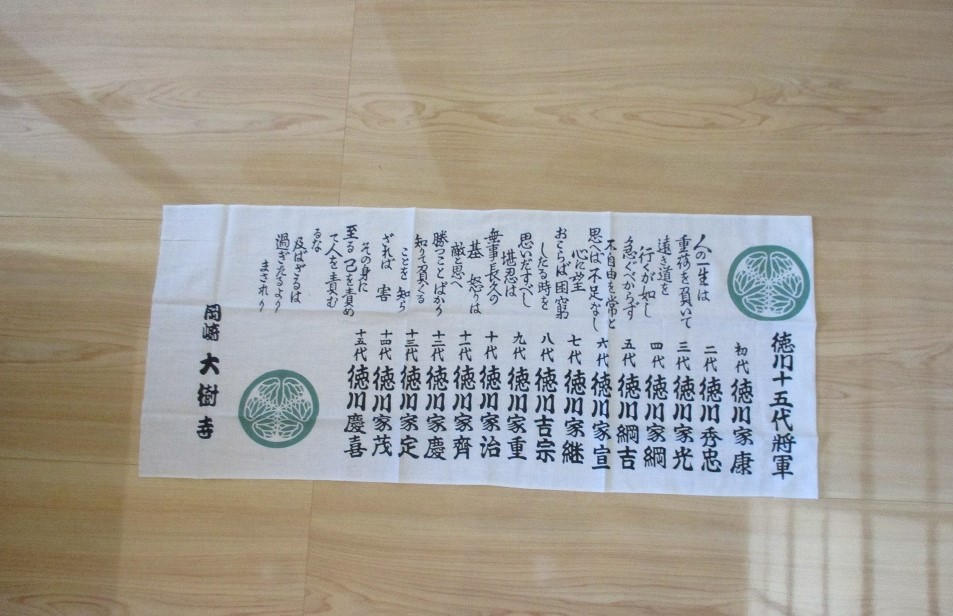 徳川十五代將軍
初代 徳川家康
二代 徳川秀忠
三代 徳川家光
四代 徳川家綱
五代 徳川綱吉
六代 徳川家宣
七代 徳川家継
八代 徳川吉宗
九代 徳川家重
十代 徳川家治
十一代 徳川家齊
十二代 徳川家慶
十三代 徳川家定
十四代 徳川家茂
十五代 徳川慶喜
人の一生は
重荷を負いて
遠き道を
行くが如し
急ぐべからず
不自由を常と
思へば不足なし
心に望
おこらば困窮
したる時を
思いだすべし
堪忍は
無事長久の
基 怒りは
敵と思へ
勝つことばかり
知りて負くる
ことを 知ら
ざれば 害
その身に
至る 己を責め
て人を責む
るな
及ばざるは
過ぎたるより
まされり
岡崎 大樹寺